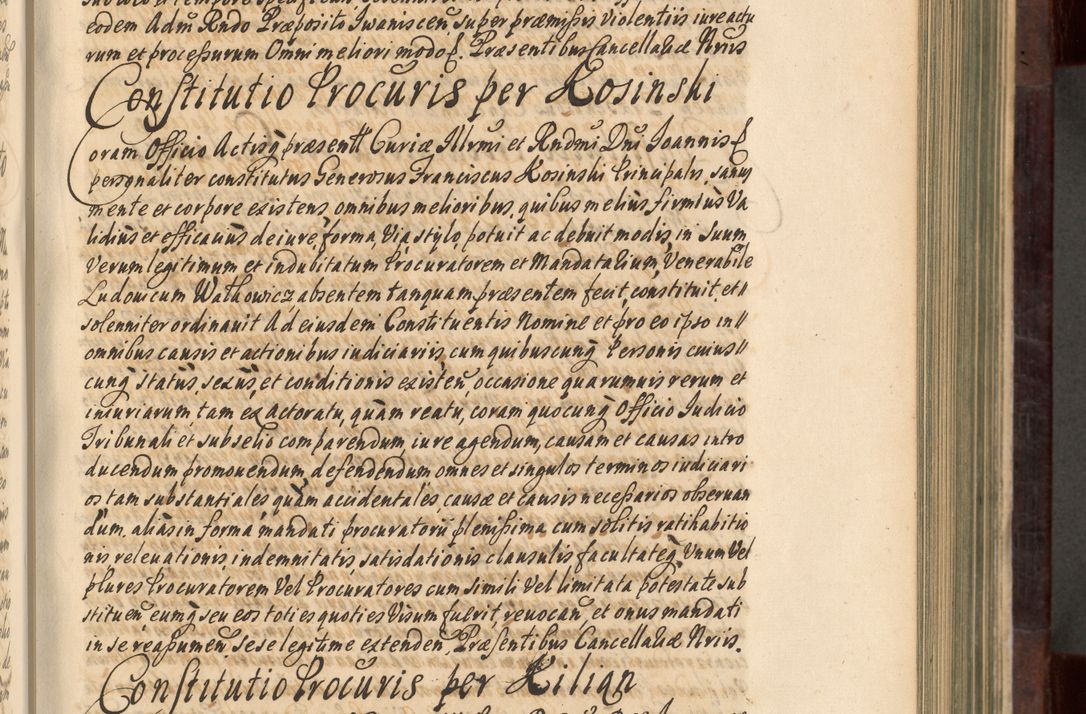 eodem Adm̃ Rndo Præposito Iwaniscen̄ super præmissis Violentiis iure actu
rum et processurum Omni meliori modo etc. Præsentibus Cancellariæ Nriis
Constitutio Procuris per Kosinski
Coram Officio Actisq̃ præsentt Curiæ Illrmi et Rndmi Dni Joannis etc
personaliter constitutus Generosus Franciscus Kosinski Principalis, sanus
mente et corpore existens omnibus melioribus, quibus melius firmius Va
lidius et efficatius de iure, forma, via stylo, potuit ac debuit modis, in Suum
Verum legitimum et indubitatum Procuratorem et Mandatarium, Venerabile
Ludovicum Watkowicz absentem tanquam præsentem fecit, constituit, et
solenniter ordinavit Ad eiusdem Constituentis Nomine et pro eo ipso in
omnibus causis et actionibus iudiciariis, cum quibuscunq̃ Personis cuius
cunq̃ status, sexus, et conditionis existen̄, occasione quarumvis rerum et
iniuriarum, tam ex Actoratu, quàm reatu, coram quocunq̃ Officio Judicio
Tribunali et subselio comparendum, iure agendum, causam et causas intro
ducendum promovendum, defendendum omnes et singulos terminos iudiciari
os tam substantiales quàm accidentales, causæ et causis necessarios observan
dum, aliàs in forma mandati procuratorii plenissima cum solitis ratihabitio
nis relevationis, indemnitatis, satisdationis clausulis facultateq̃ Unum Vel
plures Procuratorem Vel Procuratores cum simili Vel limitata Potestate sub
stituen̄ eumq̃ seu eos toties quoties Visum fuerit, revocan̄, et onus mandati
in se reassumen̄ sese legitime extenden̄, Præsentibus Cancellariæ Nriis.
Constitutio Procuris per Kilian